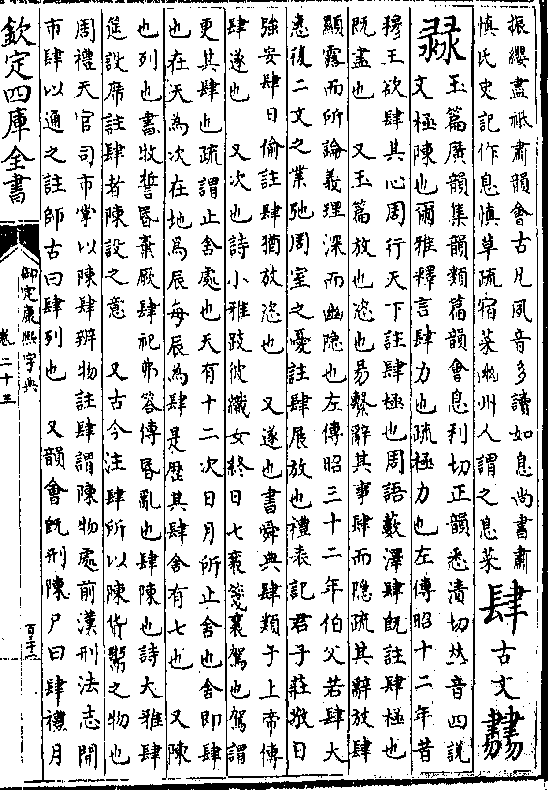 振纓盡祇肅韻會古凡風音多讀如息尚書肅
慎氏史記作息慎草疏宿菜幽州人謂之息菜 肆 古文 𢑬
𢑱 玉篇廣韻集韻類篇韻會息利切正韻悉漬切𠀤音四說
文極陳也爾雅釋言肆力也疏極力也左傳昭十二年昔
穆王欲肆其心周行天下註肆極也周語藪澤肆旣註肆極也
旣盡也 又玉篇放也恣也易繫辭其事肆而隐疏其辭放肆
顯露而所論義理深而幽隐也左傳昭三十二年伯父若肆大
惠復二文之業弛周室之憂註肆展放也禮表記君子莊敬日
強安肆日偷註肆猶放恣也 又遂也書舜典肆類于上帝傳
肆遂也 又次也詩小雅跂彼織女終日七襄箋襄駕也駕謂
更其肆也疏謂止舍處也天有十二次日月所止舍也舍即肆
也在天為次在地為辰每辰為肆是歷其肆舍有七也 又陳
也列也書牧誓昬棄厥肆祀弗答傳昬亂也肆陳也詩大雅肆
筵設席註肆者陳設之意 又古今注肆所以陳貨鬻之物也
周禮天官司市掌以陳肆辨物註肆謂陳物處前漢刑法志開
市肆以通之註師古曰肆列也 又韻會旣刑陳尸曰肆禮月
欽定四庫全書
御定康熙字典
卷二十三